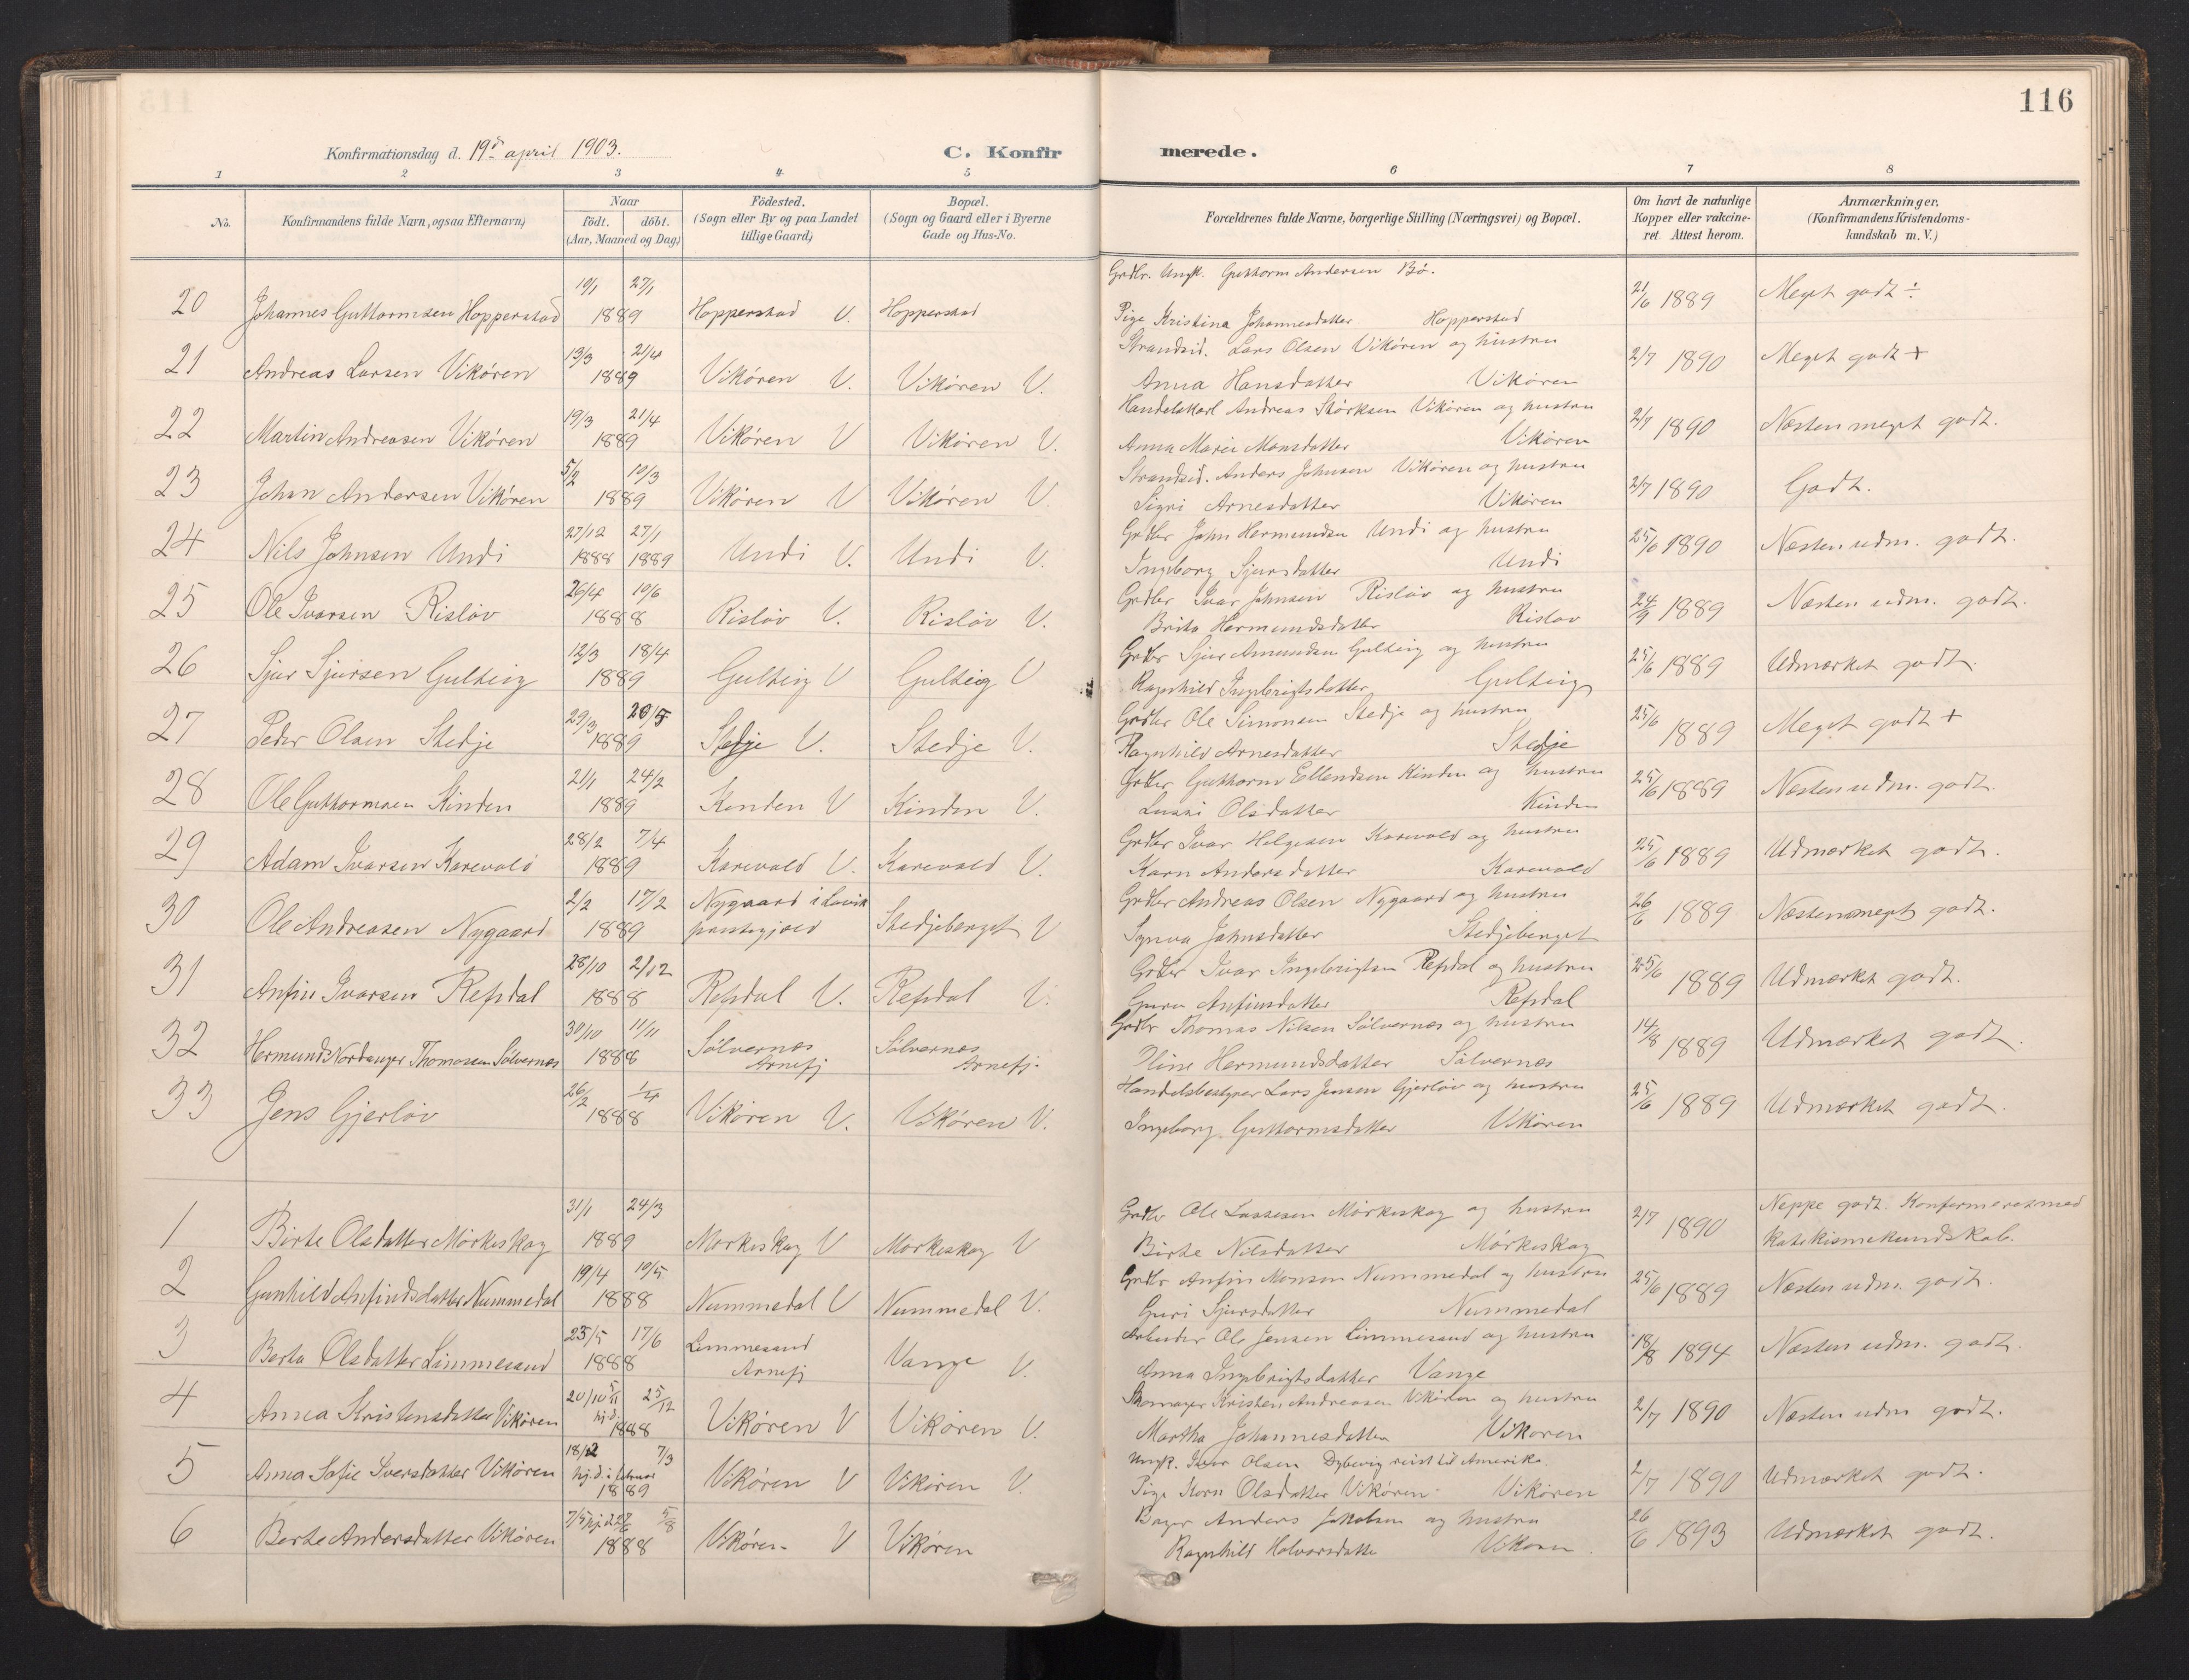 116
Konfirmationsdag d. 19de april 1903.
C. Konfirmerede.
1 2 3 4 5 6 7 8
No. Konfirmandens fulde Navn, ogsaa Efternavn) Naar födt. döbt. (Aar, Maaned og Dag) Födested. (Sogn eller By og paa Landet tillige Gaard) Bopæl. (Sogn og Gaard eller i Byerne Gade og Hus-No. Forældrenes fulde Navne, borgerlige Stilling (Næringsvei) og Bopæl. Om havt de naturlige Kopper eller vakcineret. Attest herom. Anmærkninger. (Konfirmandens Kristendomskundskab m. V.)
Grdbr. Ungk. Guttorm Andersen Bö.
20 Johannes Guttormsen Hopperstad 19/1 27/1 1889 Hopperstad V. Hopperstad Pige Kristina Johannesdatter Hopperstad 21/6 1889 Meget godt ÷
Strandsid. Lars Olsen Vikören og hustru
21 Andreas Larsen Vikören 13/3 21/4 1889 Vikören V. Vikören V. Anna Hansdatter Vikören 2/7 1890 Meget godt +
Handelskarl Andreas Störksen Vikören og hustru
22 Martin Andreasen Vikören 19/3 21/4 1889 Vikören V Vikören V. Anna Marie Monsdatter Vikören 2/7 1890 Næsten meget godt.
Strandsid. Anders Johnsen Vikören og hustru
23 Johan Andersen Vikören 5/2 10/3 1889 Vikören V Vikören V. Sigri Arnesdatter Vikören 2/7 1890 Godt.
Grdbr John Hermundsen Undi og hustru
24 Nils Johnsen Undi 27/12 1888 27/1 1889 Undi V. Undi V. Ingeborg Sjursdatter Undi 25/6 1890 Næsten udm. godt.
Grdbr Ivar Johnsen Rislöv og hustru
25 Ole Ivarsen Rislöv 26/4 10/6 1888 Rislöv V. Rislöv V. Brita Hermundsdatter Rislöv 24/9 1889 Næsten udm. godt.
Grdbr Sjur Amundsen Gulteig og hustru
26 Sjur Sjursen Gulteig 12/3 18/4 1889 Gulteig V Gulteig V Ragnhild Ingebrigtsdatter Gulteig 25/6 1889 Udmærket godt.
Grdbr Ole Simonsen Stedje og hustru
27 Peder Olsen Stedje 29/3 20/5 1889 Stedje V. Stedje V. Ragnhild Arnesdatter Stedje 25/6 1889 Meget godt +
Grdbr Guttorm Ellendsen Kinden og hustru
28 Ole Guttormsen Kinden 21/1 24/2 1889 Kinden V Kinden V. Olsdatter Kinden 25/6 1889 Næsten udm. godt.
Grdbr Ivar Helgesen Karevold og hustru
29 Adam Ivarsen Karevold 28/2 7/4 1889 Karevold V. Karevold V. Karn Andersdatter Karevold 25/6 1889 Udmærket godt.
Grdbr Andreas Olsen Nygaard og hustru
30 Ole Andreasen Nygaard 2/2 17/2 1889 Nygaard i Lavik prestegjeld Stedjeberget V Synva Johnsdatter Stedjeberget 26/6 1889 Næsten meget godt.
Grdbr Ivar Ingebrigtsen Refsdal og hustru
31 Anfin Ivarsen Refsdal 28/10 2/12 1888 Refsdal V. Refsdal V. Guru Anfinsdatter Refsdal 25/6 1889 Udmærket godt.
Grdbr Thomas Nilsen Sölvernes og hustru
32 Hermund Nordanger Thomassen Sölvernes 30/10 11/11 1888 Sölvernes Arnefj Sölvernes Arnefj. Oline Hermundsdatter Sölvernes 14/8 1889 Udmærket godt.
Handelsbestyrer Lars Jensen Gjerlöv og hustru
33 Jens Gjerlöv 26/2 1/4 1888 Vikören V. Vikören V. Ingeborg Guttormsdatter Vikören 25/6 1889 Udmærket godt.
Grdbr Ole Lassesen Mörkeskog og hustru Neppe godt. Konfirmeret med
1 Birte Olsdatter Mörkeskog 31/1 24/3 1889 Mörkeskog V Mörkeskog V Birte Nilsdatter Mörkeskog 2/7 1890 katekismekundskab.
Grdbr Anfin Monsen Nummedal og hustru
2 Gunhild Anfindsdatter Nummedal 19/4 10/5 1888 Nummedal V Nummedal V. Guri Sjursdatter Nummedal 25/6 1889 Næsten udm. godt.
Arbeider Ole Jensen Limmesand og hustru
3 Berta Olsdatter Limmesand 23/5 17/6 1888 Limmesand Arnefj Vange V. Anna Ingebrigtsdatter Vange 18/8 1894 Næsten udm. godt.
Skomager Kristen Andreasen Vikören og hustru
4 Anna Kristensdatter Vikören 20/10 5/11 hj.d. 25/12 1888 Vikören V Vikören V. Martha Johannesdatter Vikören 2/7 1890 Næsten udm godt.
Ungk. Ivar Olsen Dybevig reist til Amerika.
5 Anna Sofie Iversdatter Vikören 18/12 7/3 hj.d. i februar 1889 Vikören V Vikören V. Pige Korn Olsdatter Vikören Vikören 2/7 1890 Udmærket godt.
Bager Anders Jakobsen og hustru
6 Berte Andersdatter Vikören 7/5 hj.d. 27/6 5/8 1888 Vikören V Vikören Ragnhild Halvorsdatter Vikören. 26/6 1893 Udmærket godt.